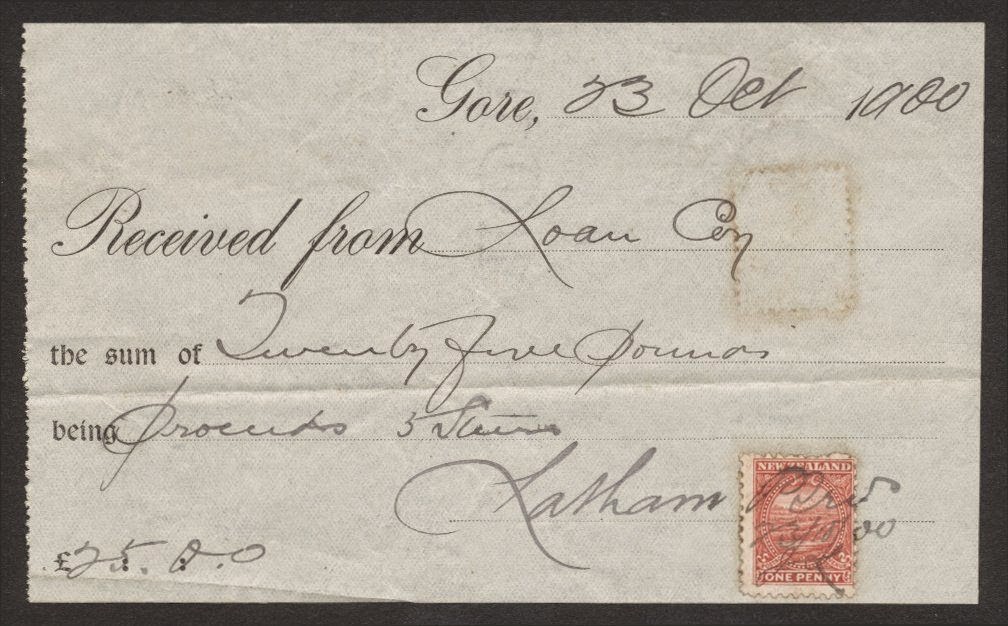 Gore, 23 Oct 1900
Received from Loan Coy
the sum of Twenty five Pounds
being Proceeds 5 Steers
Latham
NEW ZEALAND
23/10/00
£25. 0. 0
ONE PENNY